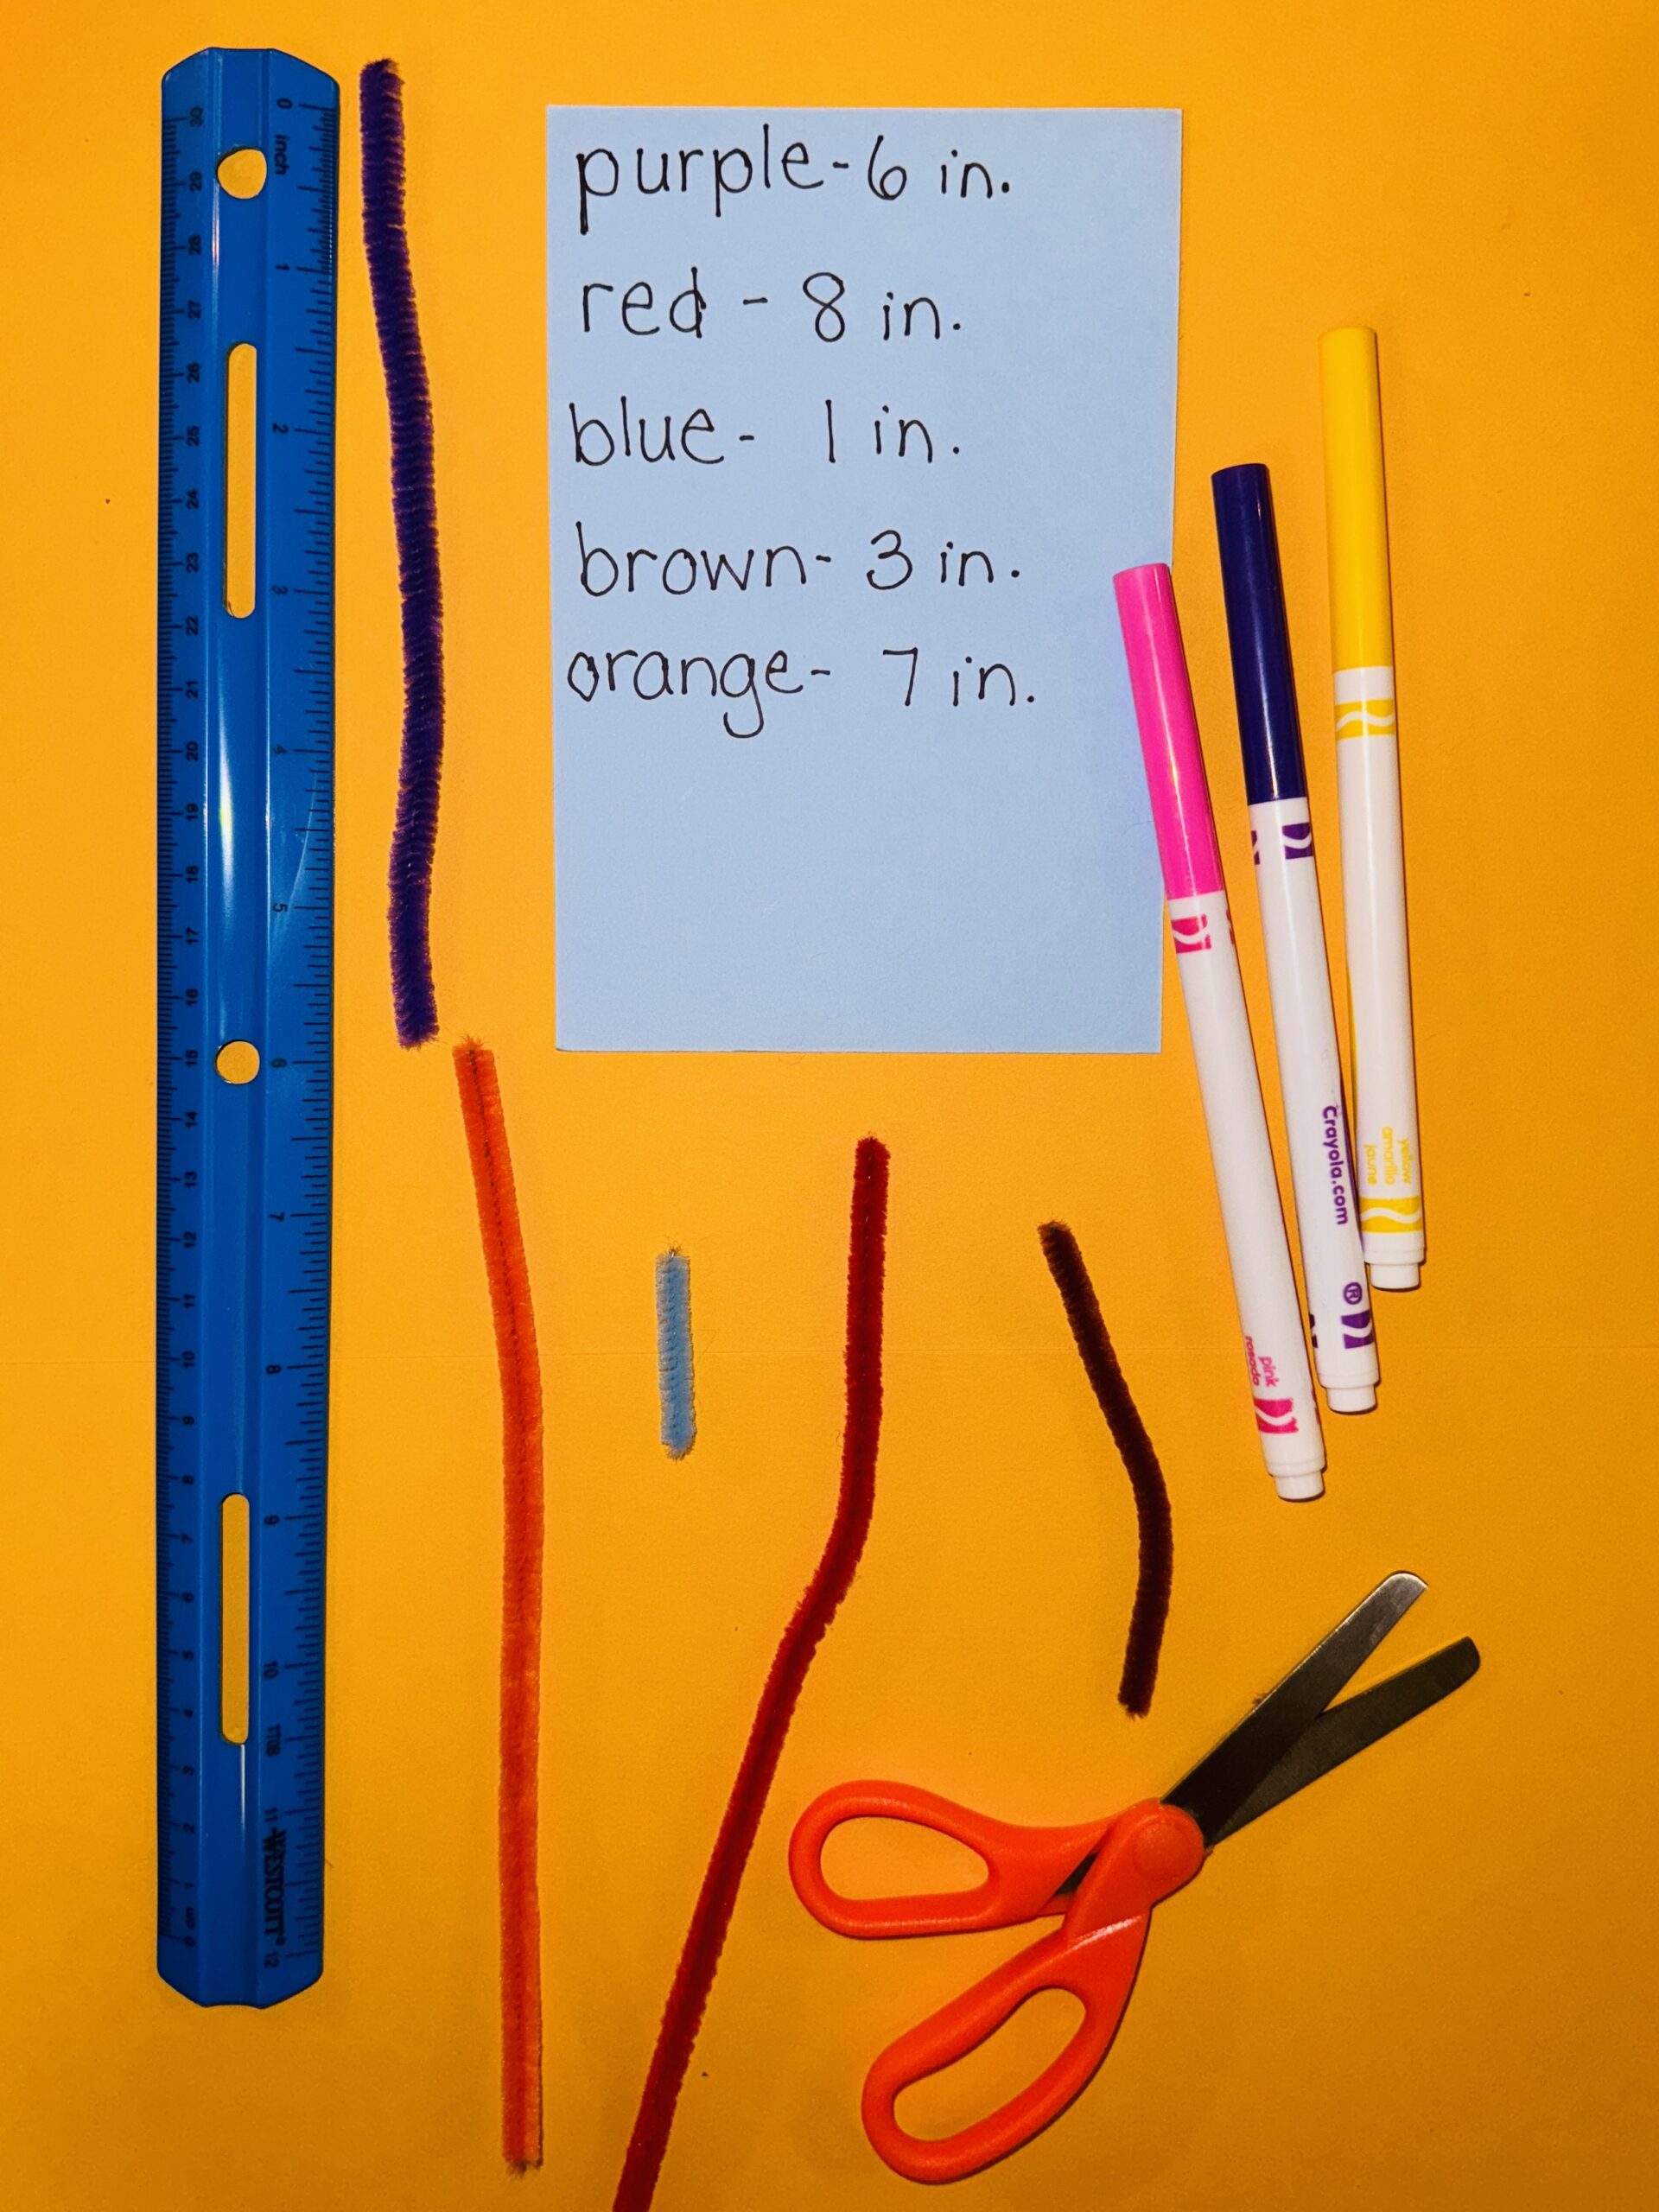 purple-6 in.
red - 8 in.
blue- 1 in.
brown- 3 in.
orange- 7 in.
0 inch 1 2 3 4 5 6 7 8 9 10 11 12
WESTCOTT®
30 29 28 27 26 25 24 23 22 21 20 19 18 17 16 15 14 13 12 11 10 9 8 7 6 5 4 3 2 1 cm 0
Crayola.com
®
yellow
amarillo
jaune
pink
rosado